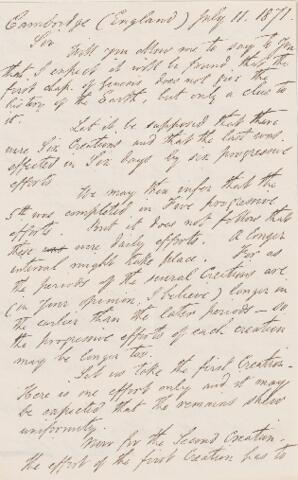 Cambridge (England) July 11. 1871.
Sir Will you allow me to say to you
that I expect it will be found that the
first chap. of Genesis does not give the
history of the Earth, but only a clue to
it.
Let it be supposed that there
were Six Creations and that the last was
effected in Six Days by six progressive
efforts
We may then infer that the
5th was completed in Five progressive
efforts. But it does not follow that
these were daily efforts. A longer
interval might take place. For as
the periods of the several Creations are
(in your opinion, I believe) longer in
the earlier than the later periods – so
the progressive efforts of each creation
may be longer too.
Let us take the first Creation –
Here is one effort only and it may
be expected that the remains shew
uniformity.
Now for the Second Creation.
the effort of the first Creation has to